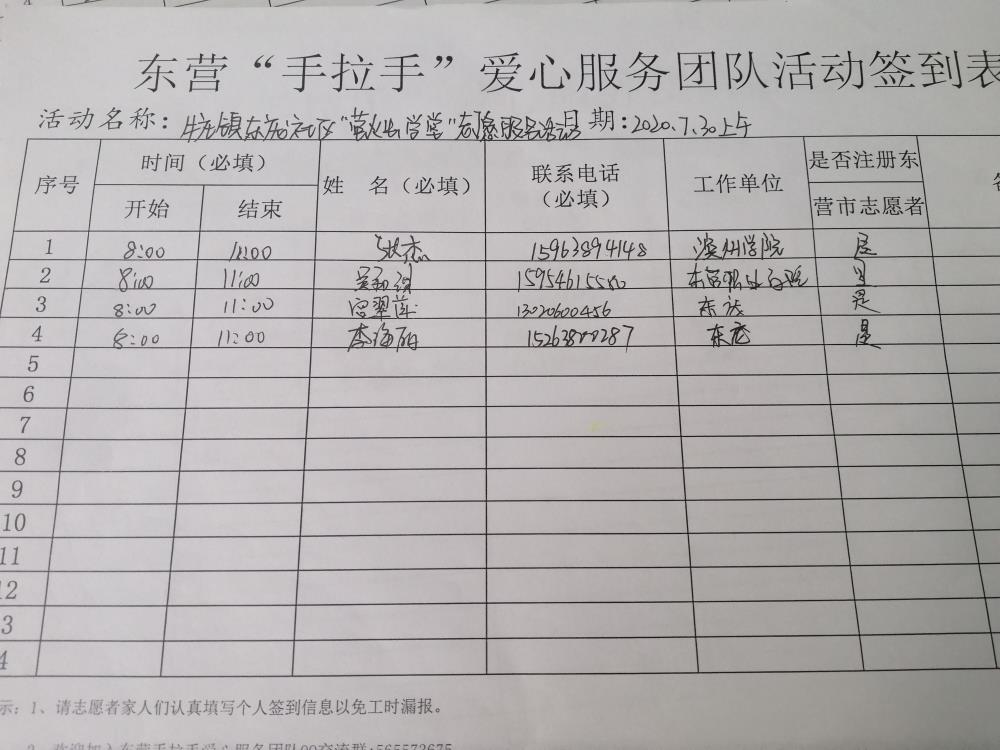 东营“手拉手”爱心服务团队活动签到表
活动名称：牛庄镇东庞社区“萤火虫学堂”志愿服务活动 日期：2020.7.30上午
序号 时间（必填） 姓 名（必填） 联系电话（必填） 工作单位 是否注册东营市志愿者
开始 结束
1 8:00 11:00 张杰 15963894148 滨州学院 是
2 8:00 11:00 东营职业学院 是
3 8:00 11:00 13020600456 是
4 8:00 11:00 李海丽 15263800287 是
5
6
7
8
9
10
11
12
3
4
示：1、请志愿者家人们认真填写个人签到信息以免工时漏报。
2、欢迎加入东营手拉手爱心服务团队QQ交流群:565573675